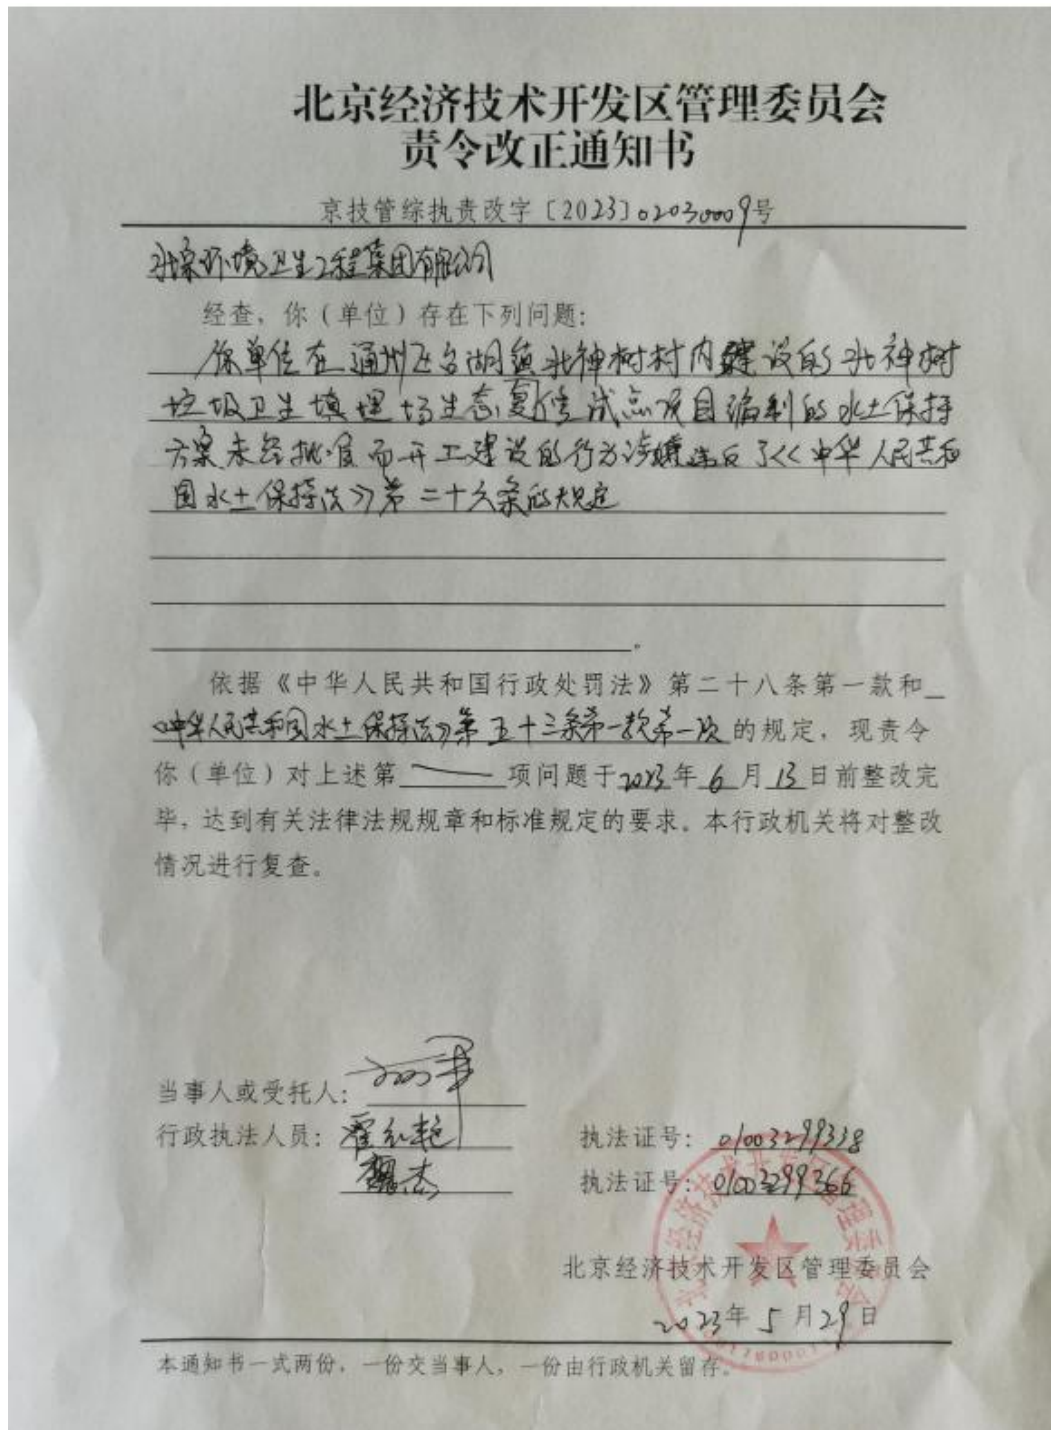 北京经济技术开发区管理委员会
责令改正通知书
京技管综执责改字〔2023〕02030009号
北京环境卫生工程集团有限公司
经查，你（单位）存在下列问题：
你单位在通州区台湖镇北神树村内建设的北神树
垃圾卫生填埋场生态复修试点项目编制的水土保持
方案未经批准而开工建设的行为涉嫌违反了《中华人民共和
国水土保持法》第二十六条的规定
。
依据《中华人民共和国行政处罚法》第二十八条第一款和
《中华人民共和国水土保持法》第五十三条第一款第一项的规定，现责令
你（单位）对上述第——项问题于2023年6月13日前整改完
毕，达到有关法律法规规章和标准规定的要求。本行政机关将对整改
情况进行复查。
当事人或受托人：
行政执法人员：翟红艳 执法证号：01003299338
魏杰 执法证号：01003299366
北京经济技术开发区管理委员会
2023年5月29日
本通知书一式两份，一份交当事人，一份由行政机关留存。